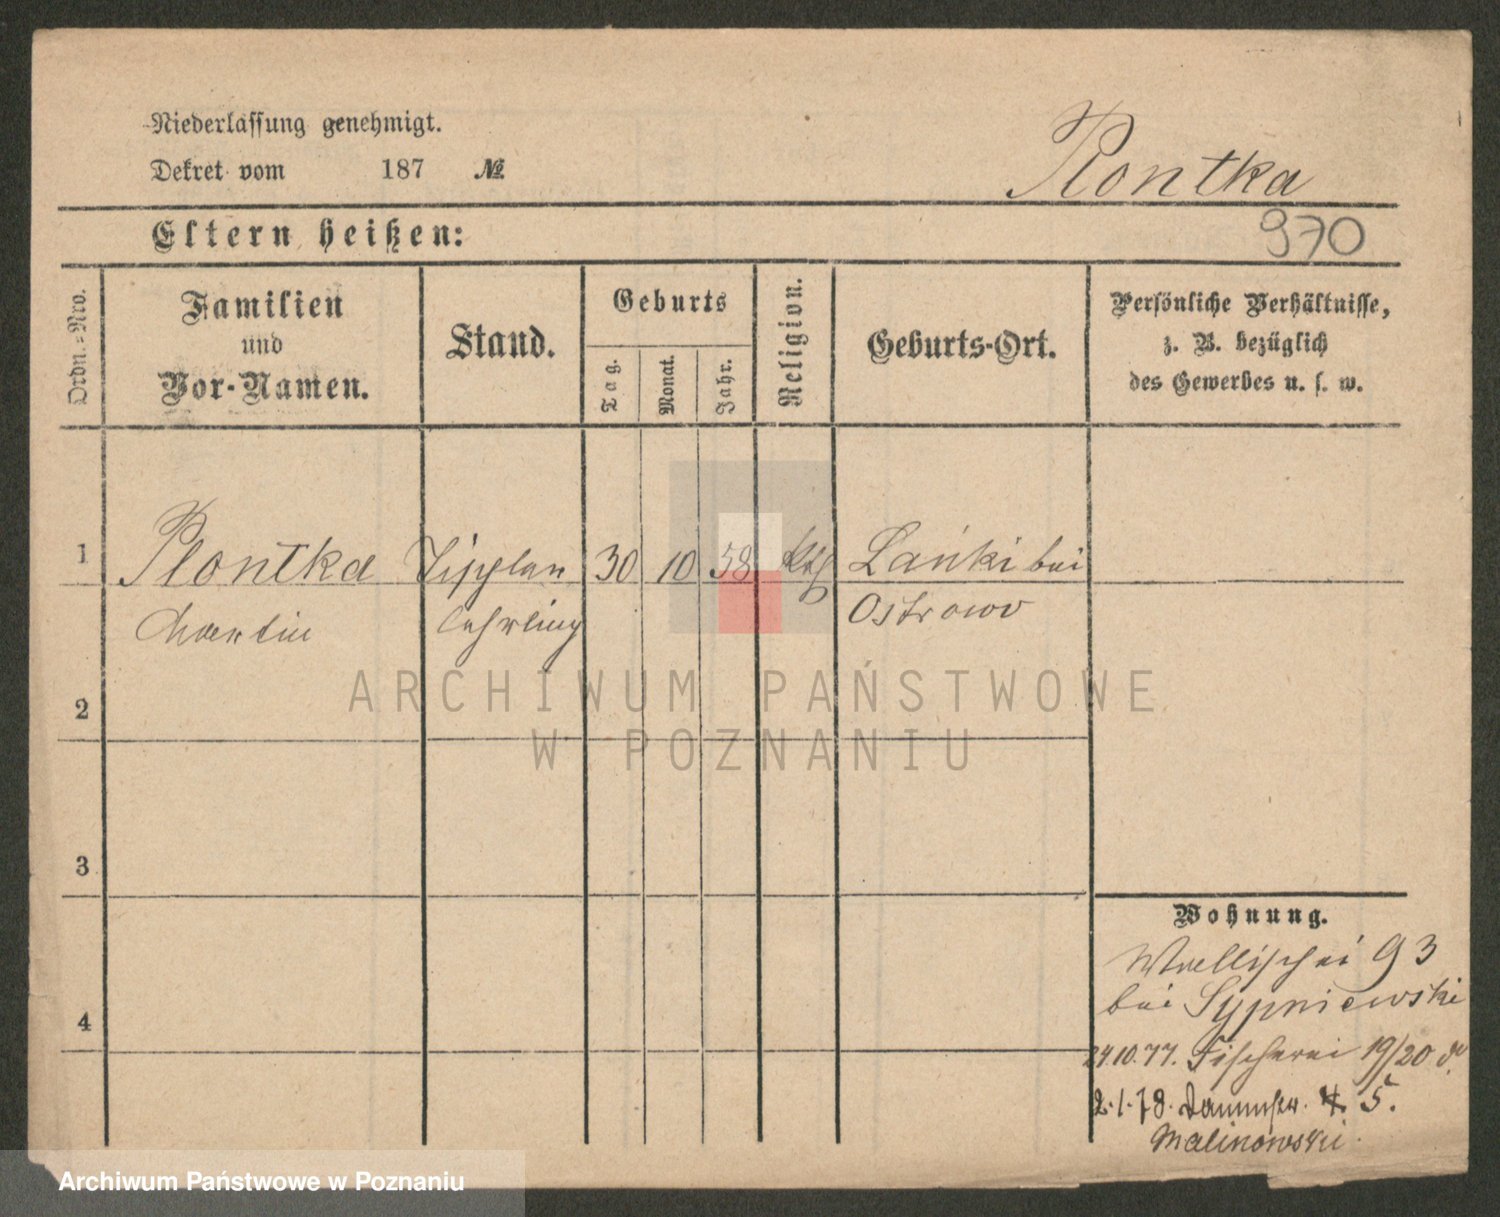 Niederlassung genehmigt.
Dekret vom 187 №
Plontka
970
Eltern heißen:
Ordn.-Nro.
Familien
und
Vor-Namen.
Stand.
Geburts
Tag.
Monat.
Jahr.
Religion.
Geburts-Ort.
Persönliche Verhältnisse,
z. B. bezüglich
des Gewerbes u. s. w.
1
Plontka
Martin
Tischler
lehrling
30
10
58
kath
Lańki bei
Ostrowo
2
3
4
Wohnung.
Wallischei 93
bei Sypniewski
24.10.77. Fischerei 19/20
2.1.78. Dammstr. 5.
Malinowski.
ARCHIWUM PAŃSTWOWE
W POZNANIU
Archiwum Państwowe w Poznaniu